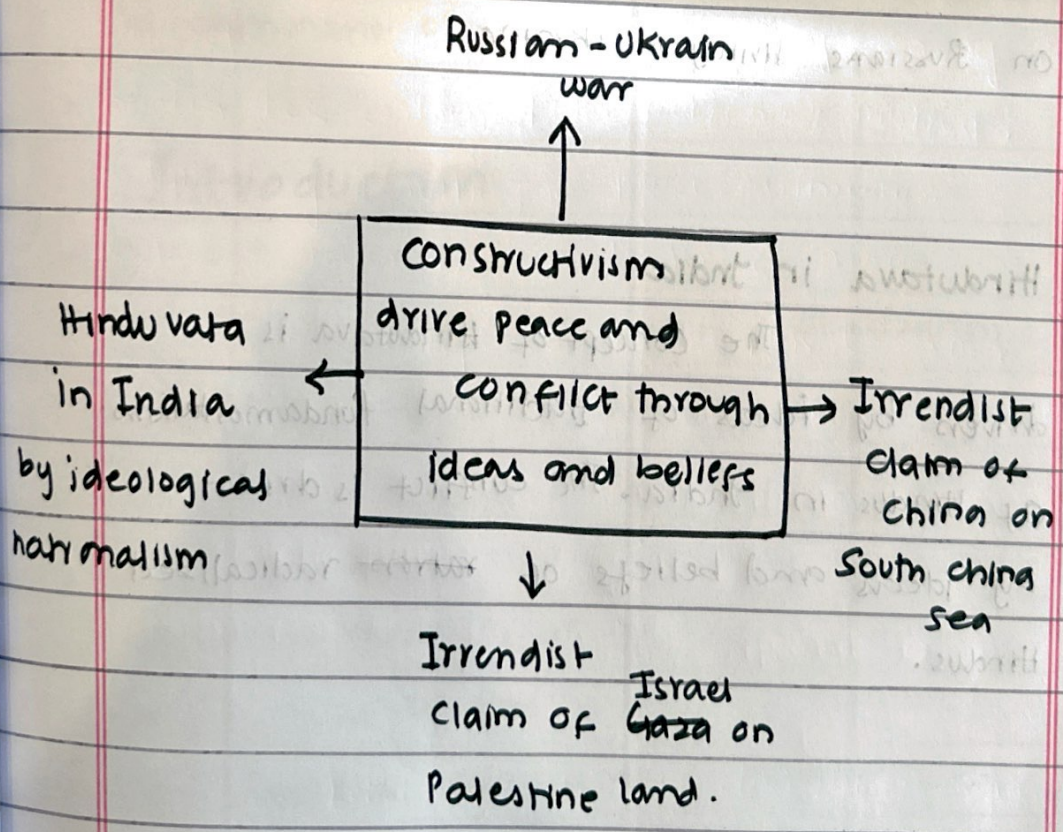 Russian - Ukrain
war
constructivism
drive peace and
conflict through
ideas and beliefs
Hinduvata
in India
by ideological
nationalism
Irrendist
claim of
china on
South china
sea
Irrendist
Israel
claim of Gaza on
Palestine land.